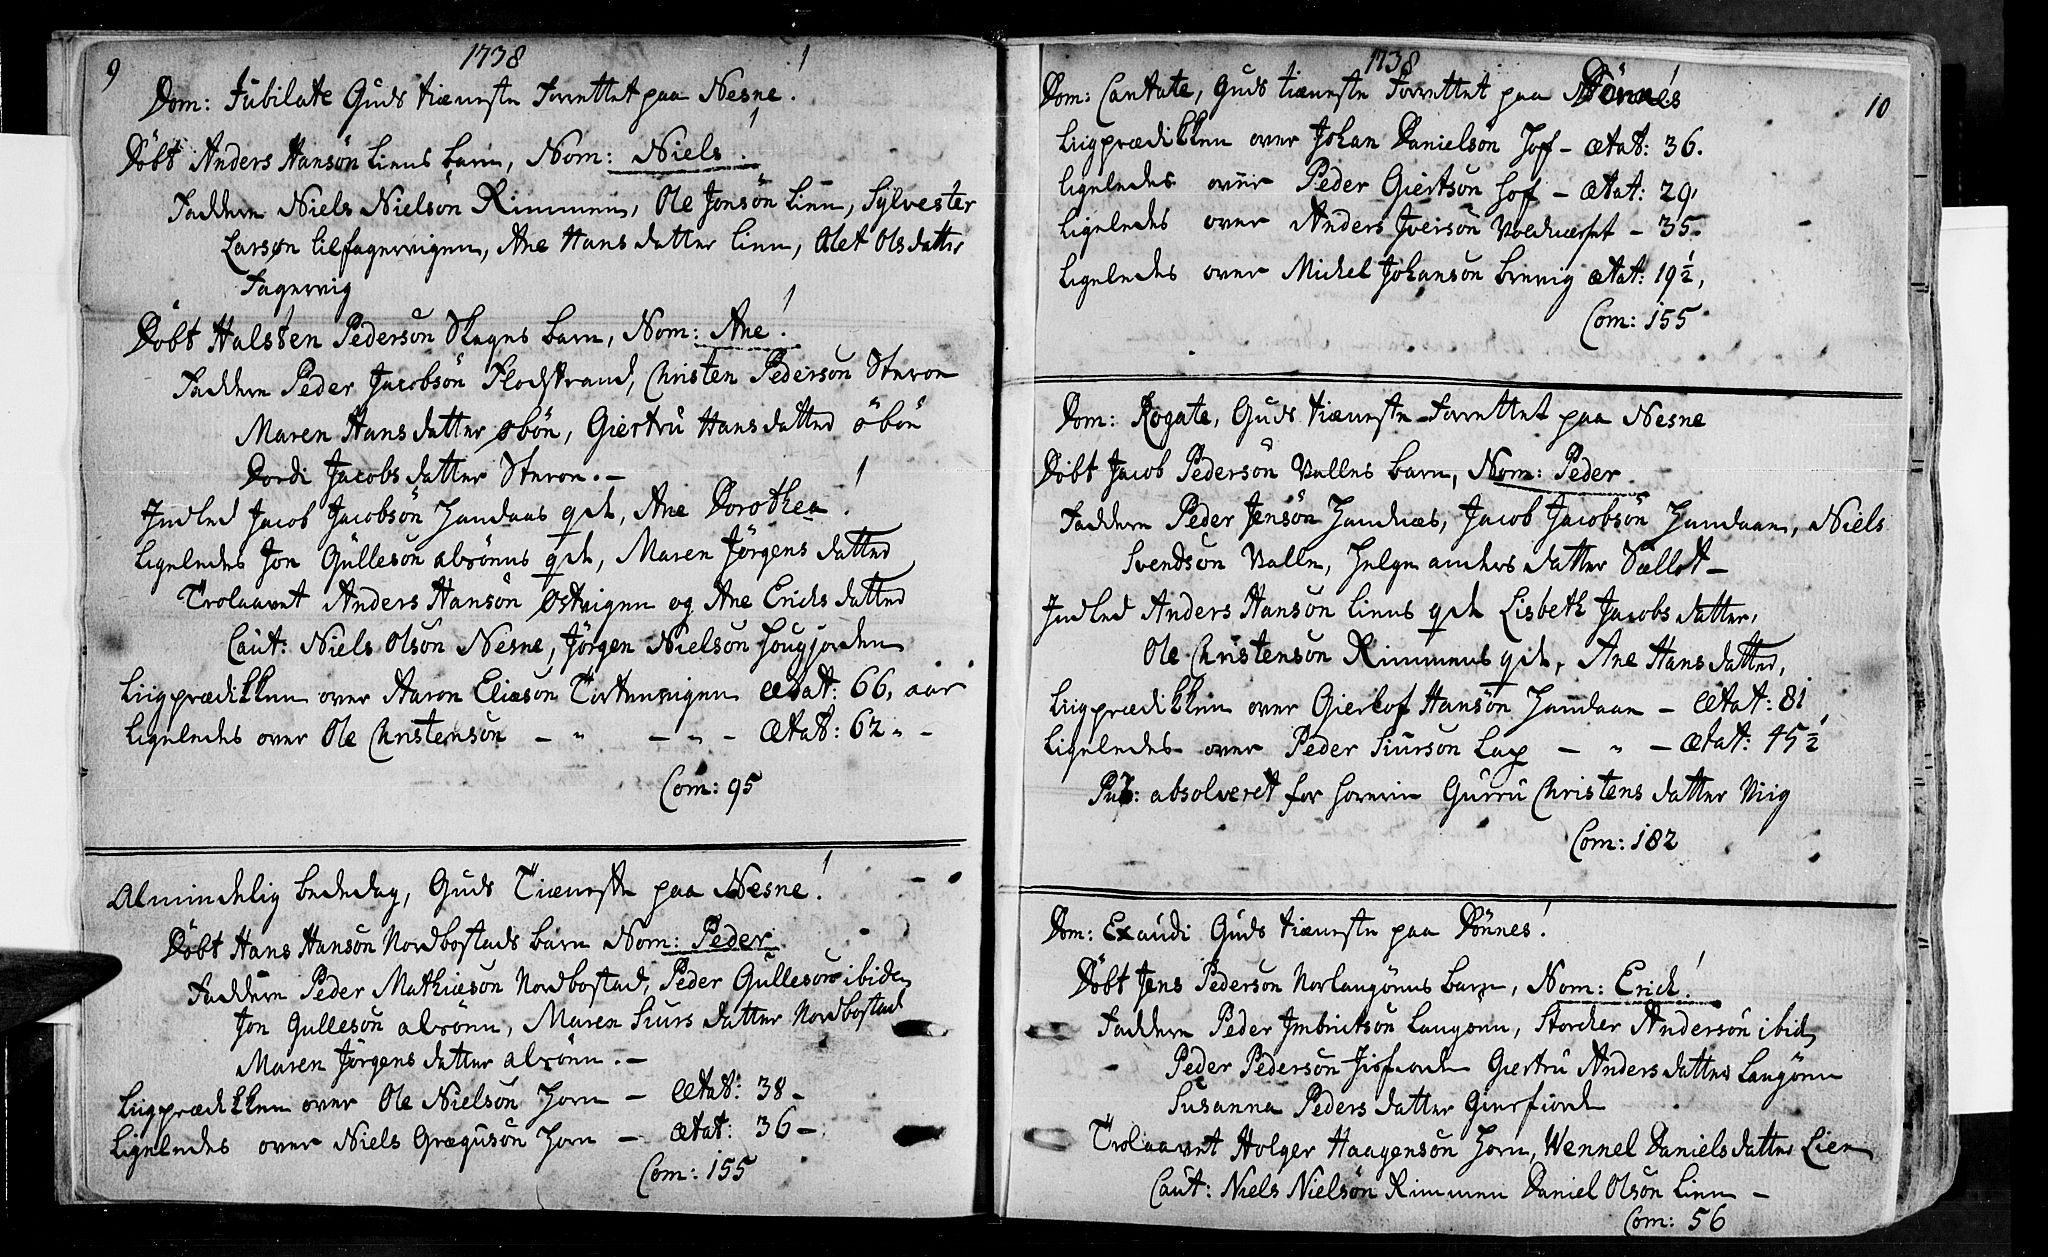 9
1738
Dom: Jubilate Guds tienneste Forrettet paa Nesne!
Döbt Anders Hansön Liens barn, Nom: Niels!
Faddern Niels Nielsön Rimmen, Ole Jonsön Lien, Sylvester
Larsøn Lilfagervigen, Ane Hans datter Lien, Alet Olsdatter
Fagervig
Döbt Halsten Pedersön Skagns barn, Nom: Ane!
Faddern Peder Jacobsön Flodstrand, Christen Pedersön Steron
Maren Hansdatter öbön, Giertrú Hansdatter öbön
Dordi Jacobs datter Steron. –
Indled Jacob Jacobsön Handaas qvde, Ane Dorothea!
Ligeledes Jon Gúllesön alsönnes qvde, Maren Jörgens datter
Trolaavet Anders Hansön Østvigen og Ane Erichs datter
Caút: Niels Olsön Nesne, Jörgen Nielsön Hougjorden
Liigprædikken over Aaron Eliæson Tortenvigen ætat: 66, aar
Ligeledes over Ole Christensön – " – " – ætat: 62 " –
Com: 95
Almindelig bededag, Guds Tienneste paa Nesne!
Döbt Hans Hansön Nordbostads barn Nom: Peder
Faddern Peder Mathiæsön Nordbostad, Peder Gúllesön ibiden
Jon Gullesön alsönn, Maren Siurs datter Nordbostad
Maren Jörgens datter alsönn. –
Liigprædikken over Ole Nielsön Horn – ætat: 38 –
Ligeledes over Niels Grægúsön Horn – ætat: 36 –
Com: 155
1738
10
Dom: Cantate, Guds tienneste Forrettet paa Dönnes!
Liigprædikken over Johan Danielsön Hof – ætat: 36.
ligeledes over Peder Giertsön Hof – ætat: 29,
Ligeledes over Anders Iversön – 35 –
Ligeledes over Michel Johansön Brevig ætat: 19½,
Com: 155
Dom: Rogate, Guds tienneste Forrettet paa Nesne
Döbt Jacob Pedersön Valles barn, Nom: Peder
Faddern Peder Jensön Handnæs, Jacob Jacobsön Handaan, Niels
Svendsön Valle, Helge anders datter Sællot –
Indled Anders Hansön Liens qvde Lisbeth Jacobs datter,
Ole Christensön Rimmens qvde, Ane Hans datter,
Liigprædikken over Gierlof Hansön Handaan – ætat: 81
Ligeledes over Peder Siursön Lap – " – ætat: 45½
Pub: absolveret for Gurrú Christens datter Viig
Com: 182
Dom: Exaudi Guds tienneste paa Dönnes!
Döbt Jens Pedersön Norlangönnes barn, Nom: Erich!
Faddern Peder Imbrictsön Langönn, Storcker Andersön ibid
Peder Pedersön Giertrú Anders datter Langönn
Susanna Peders datter
Trolaavet Holger Haagensön Horn, Wennel Danielsdatter Lien
Caút: Niels Nielsön Rimmen Daniel Olsön Lien –
Com: 56